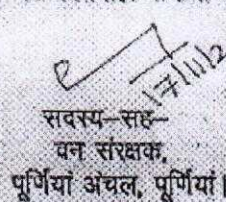 सदस्य-सह-
वन संरक्षक,
पूर्णियां अंचल, पूर्णियां।